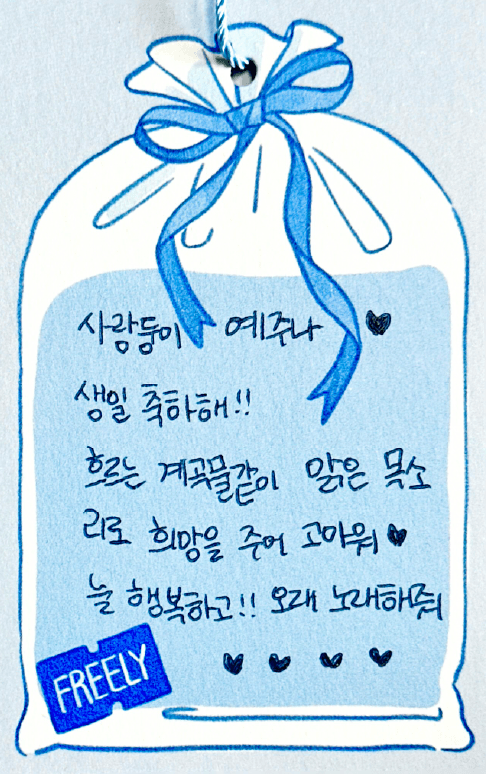 사랑둥이 예주나 ♥
생일 축하해!!
흐르는 계곡물같이 맑은 목소
리로 희망을 주어 고마워 ♥
늘 행복하고!! 오래 노래해줘
♥ ♥ ♥ ♥
FREELY